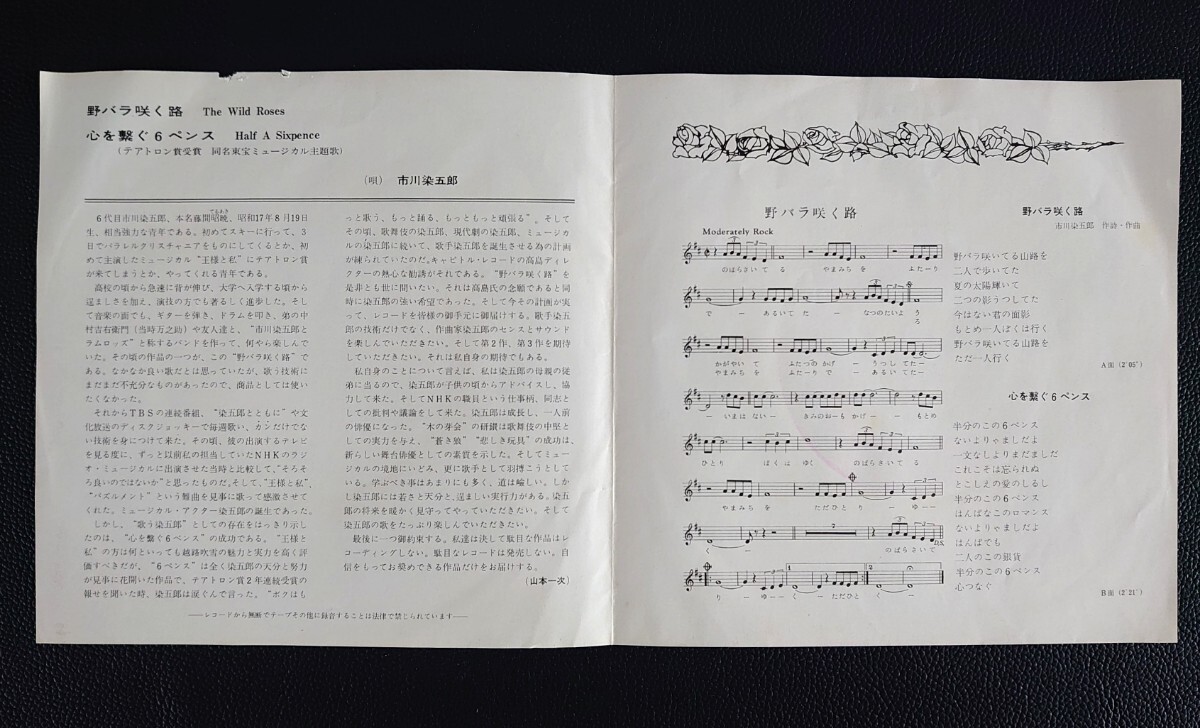 野バラ咲く路 The Wild Roses
心を繋ぐ6ペンス Half A Sixpence
(テアトロン賞受賞 同名東宝ミュージカル主題歌)
(唄) 市川染五郎
6代目市川染五郎、本名藤間昭暁、昭和17年8月19日
生、相当強力な青年である。初めてスキーに行って、3
日でパラレルクリスチャニアをものにしてくるとか、初
めて主演したミュージカル“王様と私”にテアトロン賞
が来てしまうとか、やってくれる青年である。
高校の頃から急速に背が伸び、大学へ入学する頃から
逞ましさを加え、演技の方でも著るしく進歩した。そし
て音楽の面でも、ギターを弾き、ドラムを叩き、弟の中
村吉右衛門(当時万之助)や友人達と、“市川染五郎と
ドラムロッズ”と称するバンドを作って、何やら楽しんで
いた。その頃の作品の一つが、この“野バラ咲く路”で
ある。なかなか良い歌だとは思っていたが、歌う技術に
まだまだ不充分なものがあったので、商品としては使い
たくなかった。
それからTBSの連続番組、“染五郎とともに”や文
化放送のディスクジョッキーで毎週歌い、カンだけでな
い技術を身につけて来た。その頃、彼の出演するテレビ
を見る度に、ずっと以前私の担当していたNHKのラジ
オ・ミュージカルに出演させた当時と比較して、“そろそ
ろ良いのではないか”と思ったものだ。そして、“王様と私”、
“パズルメント”という難曲を見事に歌って感激させて
くれた。ミュージカル・アクター染五郎の誕生であった。
しかし、“歌う染五郎”としての存在をはっきり示し
たのは、“心を繋ぐ6ペンス”の成功である。“王様と
私”の方は何といっても越路吹雪の魅力と実力を高く評
価すべきだが、“6ペンス”は全く染五郎の天分と努力
が見事に花開いた作品で、テアトロン賞2年連続受賞の
報せを聞いた時、染五郎は涙ぐんで言った。“ボクはも
っと歌う、もっと踊る、もっともっと頑張る”。そして
その頃、歌舞伎の染五郎、現代劇の染五郎、ミュージカ
ルの染五郎に続いて、歌手染五郎を誕生させる為の計画
が練られていたのだ。キャピトル・レコードの高島ディレ
クターの熱心な勧誘がそれである。“野バラ咲く路”を
是非とも世に問いたい。それは高島氏の念願であると同
時に染五郎の強い希望であった。そして今その計画が実
って、レコードを皆様の御手元に御届けする。歌手染五
郎の技術だけでなく、作曲家染五郎のセンスとサウンド
を楽しんでいただきたい。そして第2作、第3作を期待
していただきたい。それは私自身の期待でもある。
私自身のことについて言えば、私は染五郎の母親の従
弟に当るので、染五郎が子供の頃からアドバイスし、協
力して来た。そしてNHKの職員という仕事柄、同志と
しての批判や議論をして来た。染五郎は成長し、一人前
の俳優になった。“木の芽会”の研鑚は歌舞伎の中堅と
しての実力を与え、“蒼き狼”“悲しき玩具”の成功は、
新らしい舞台俳優としての素質を示した。そしてミュー
ジカルの境地にいどみ、更に歌手として羽搏こうとして
いる。学ぶべき事はあまりにも多く、道は嶮しい。しか
し染五郎には若さと天分と、逞ましい実行力がある。染五
郎の将来を暖かく見守ってやっていただきたい。そして
染五郎の歌をたっぷり楽しんでいただきたい。
最後に一つ御約束する。私達は決して駄目な作品はレ
コーディングしない。駄目なレコードは発売しない。自
信をもってお奨めできる作品だけをお届けする。
(山本一次)
──レコードから無断でテープその他に録音することは法律で禁じられています──
野バラ咲く路
Moderately Rock
のばらさいてる やまみちを ふたーり
でー あるいてた ー なつのたいよ う
ろ
かがやいて ふたつのかげ ー うっしてたー
やまみちを ふたーりで ー あるいてたー
ーいまはないー きみのおーも かげー ー もとめ
ひとり ぼくは ゆく のばらさいてる
やまみちを ただひとり ー ゆーー
くー のばらさいて
D.S.
1 2
りーゆーーく ー ただひとく ー
野バラ咲く路
市川染五郎 作詩・作曲
野バラ咲いてる山路を
二人で歩いてた
夏の太陽輝いて
二つの影うつしてた
今はない君の面影
もとめ一人ぼくは行く
野バラ咲いてる山路を
ただ一人行く
A面(2'05")
心を繋ぐ6ペンス
半分のこの6ペンス
ないよりゃましだよ
一文なしよりまだましだ
これこそは忘られぬ
とこしえの愛のしるし
半分のこの6ペンス
はんぱなこのロマンス
ないよりゃましだよ
はんぱでも
二人のこの銀貨
半分のこの6ペンス
心つなぐ
B面(2'21")